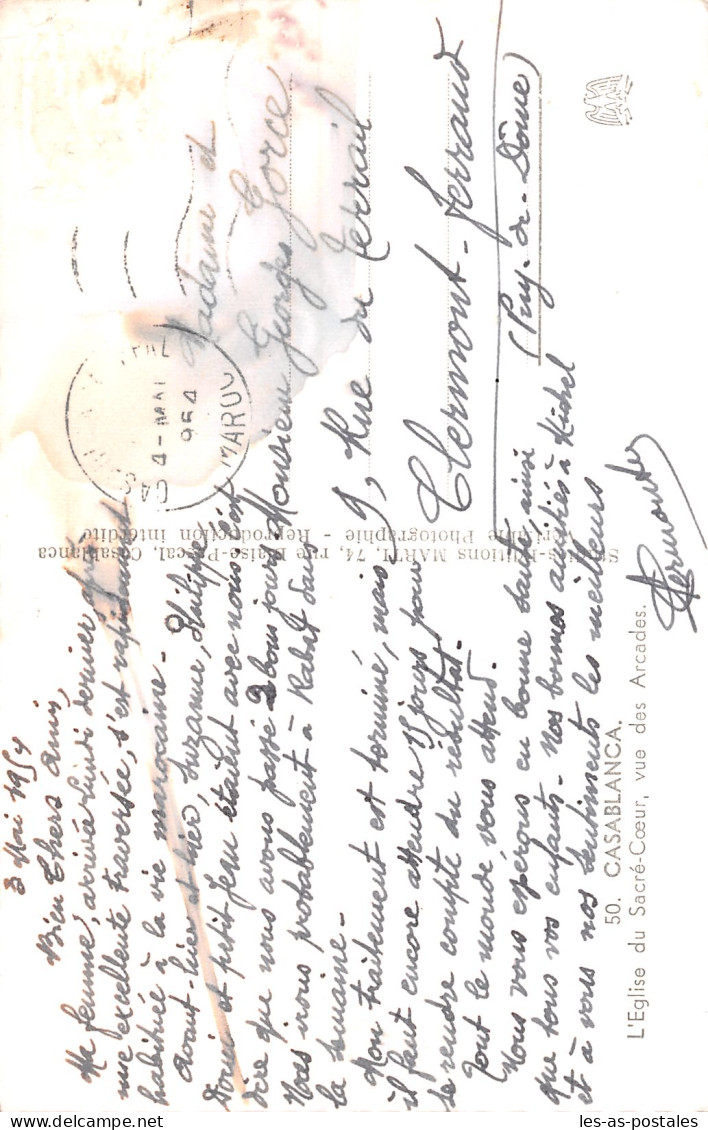 3 Mai 1954
Bien Chers Amis,
Ma femme, arrivée Lundi dernier après
une excellente traversée, s'est rapidement
habituée à la vie marocaine -
Avant-hier et hier, Suzanne, Philippe
Dorin et petit Jean étaient avec nous. C'est
dire que nous avons passé 2 bons jours.
Nous irons probablement à Rabat dans
la semaine -
Mon traitement est terminé, mais
il faut encore attendre 15 jours pour
se rendre compte du résultat.
Tout le monde vous attend.
Nous vous espérons en bonne santé ainsi
que tous vos enfants - Nos bonnes amitiés à Michel
et à vous nos sentiments les meilleurs
Madame et
Monsieur Georges Gorce
9, Rue du Terrail
Clermont-Ferrand
(Puy-de-Dôme)
4-MAI
954
MAROC
Studios-Editions MARTI, 74, rue Blaise-Pascal, Casablanca
Véritable Photographie - Reproduction interdite
50. CASABLANCA.
L'Eglise du Sacré-Cœur, vue des Arcades.
les-as-postales